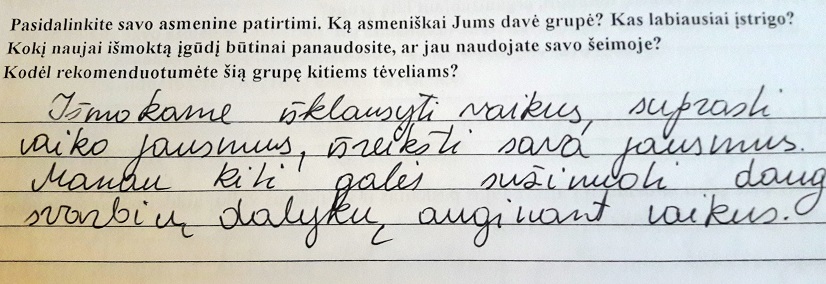 Pasidalinkite savo asmenine patirtimi. Ką asmeniškai Jums davė grupė? Kas labiausiai įstrigo?
Kokį naujai išmoktą įgūdį būtinai panaudosite, ar jau naudojate savo šeimoje?
Kodėl rekomenduotumėte šią grupę kitiems tėveliams?
Išmokame išklausyti vaikus, suprasti
vaiko jausmus, išreikšti savo jausmus.
Manau kiti galės sužinoti daug
svarbių dalykų auginant vaikus.